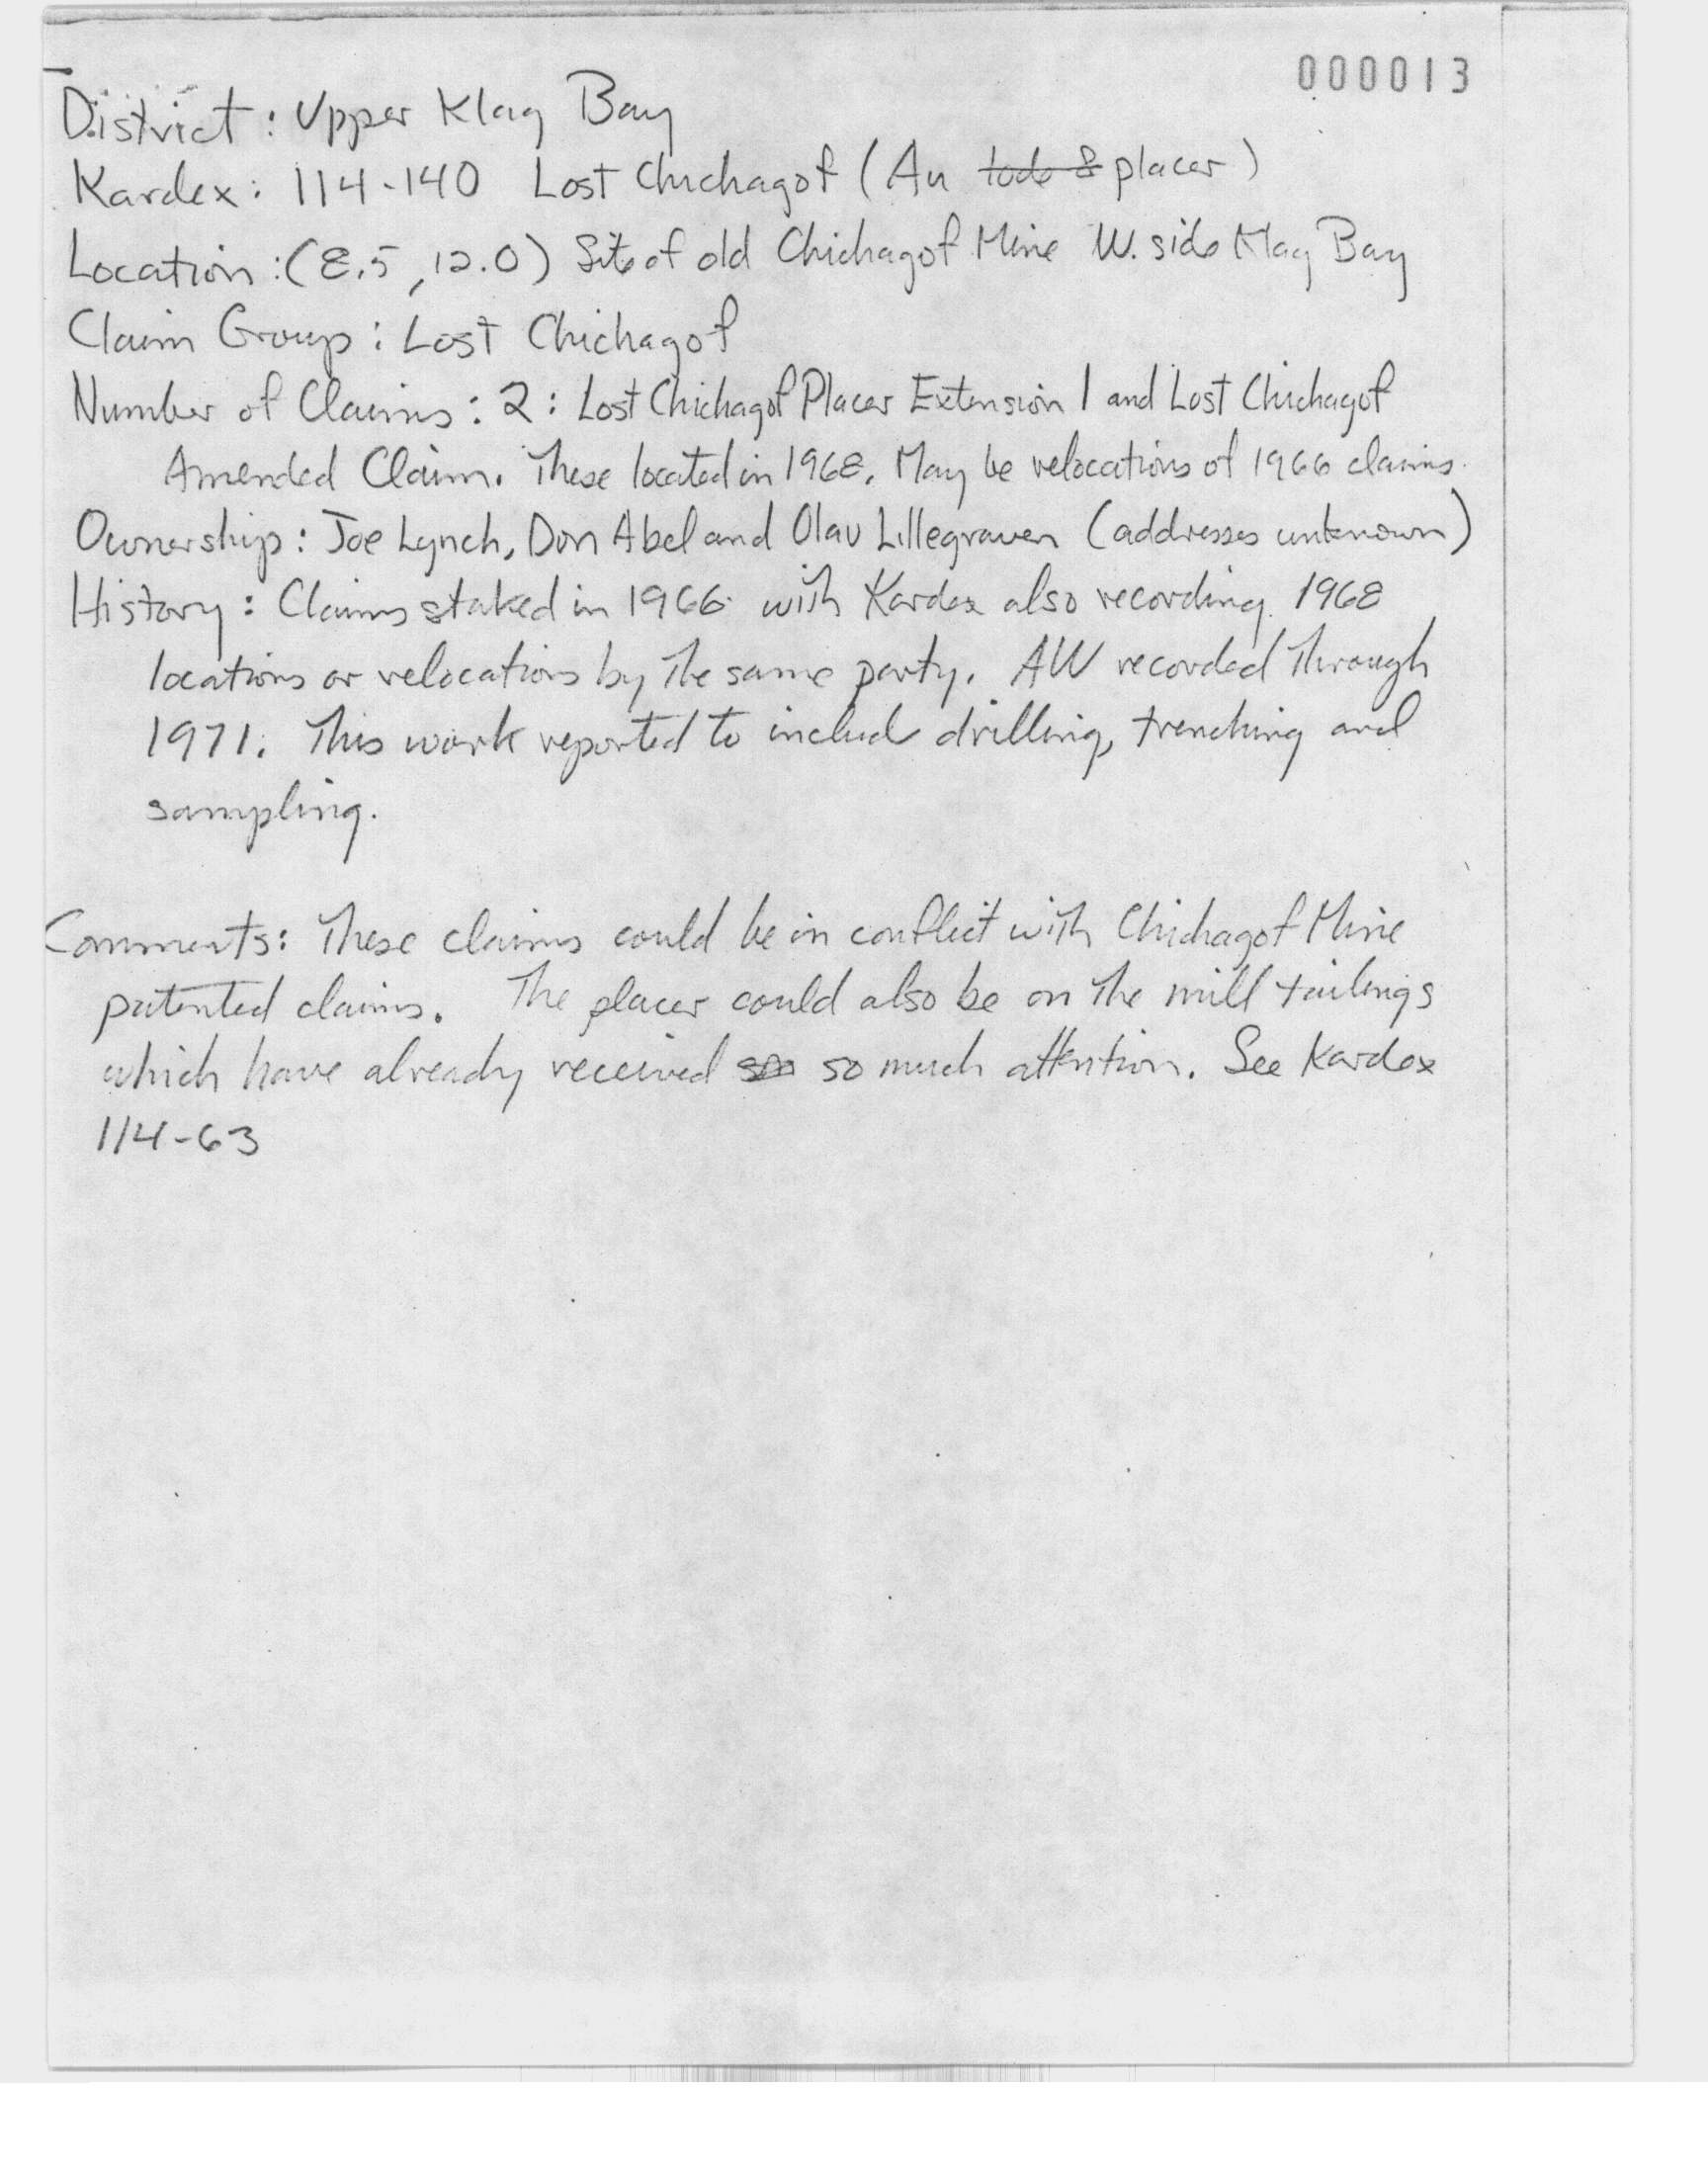 000013
District: Upper Klag Bay
Kardex: 114-140 Lost Chichagof (Au lode & placer)
Location: (8.5, 12.0) Site of old Chichagof Mine W. side Klag Bay
Claim Group: Lost Chichagof
Number of Claims: 2: Lost Chichagof Placer Extension 1 and Lost Chichagof
Amended Claim. These located in 1968. May be relocations of 1966 claims.
Ownership: Joe Lynch, Don Abel and Olav Lillegraven (addresses unknown)
History: Claims staked in 1966 with Kardex also recording 1968
locations or relocations by the same party. AW recorded through
1971. This work reported to include drilling, trenching and
sampling.
Comments: These claims could be in conflict with Chichagof Mine
patented claims. The placer could also be on the mill tailings
which have already received so much attention. See Kardex
114-63